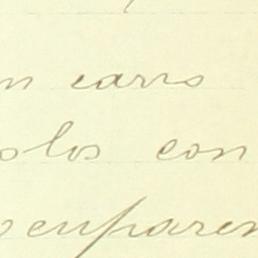 n carro
olos con
ocuparen